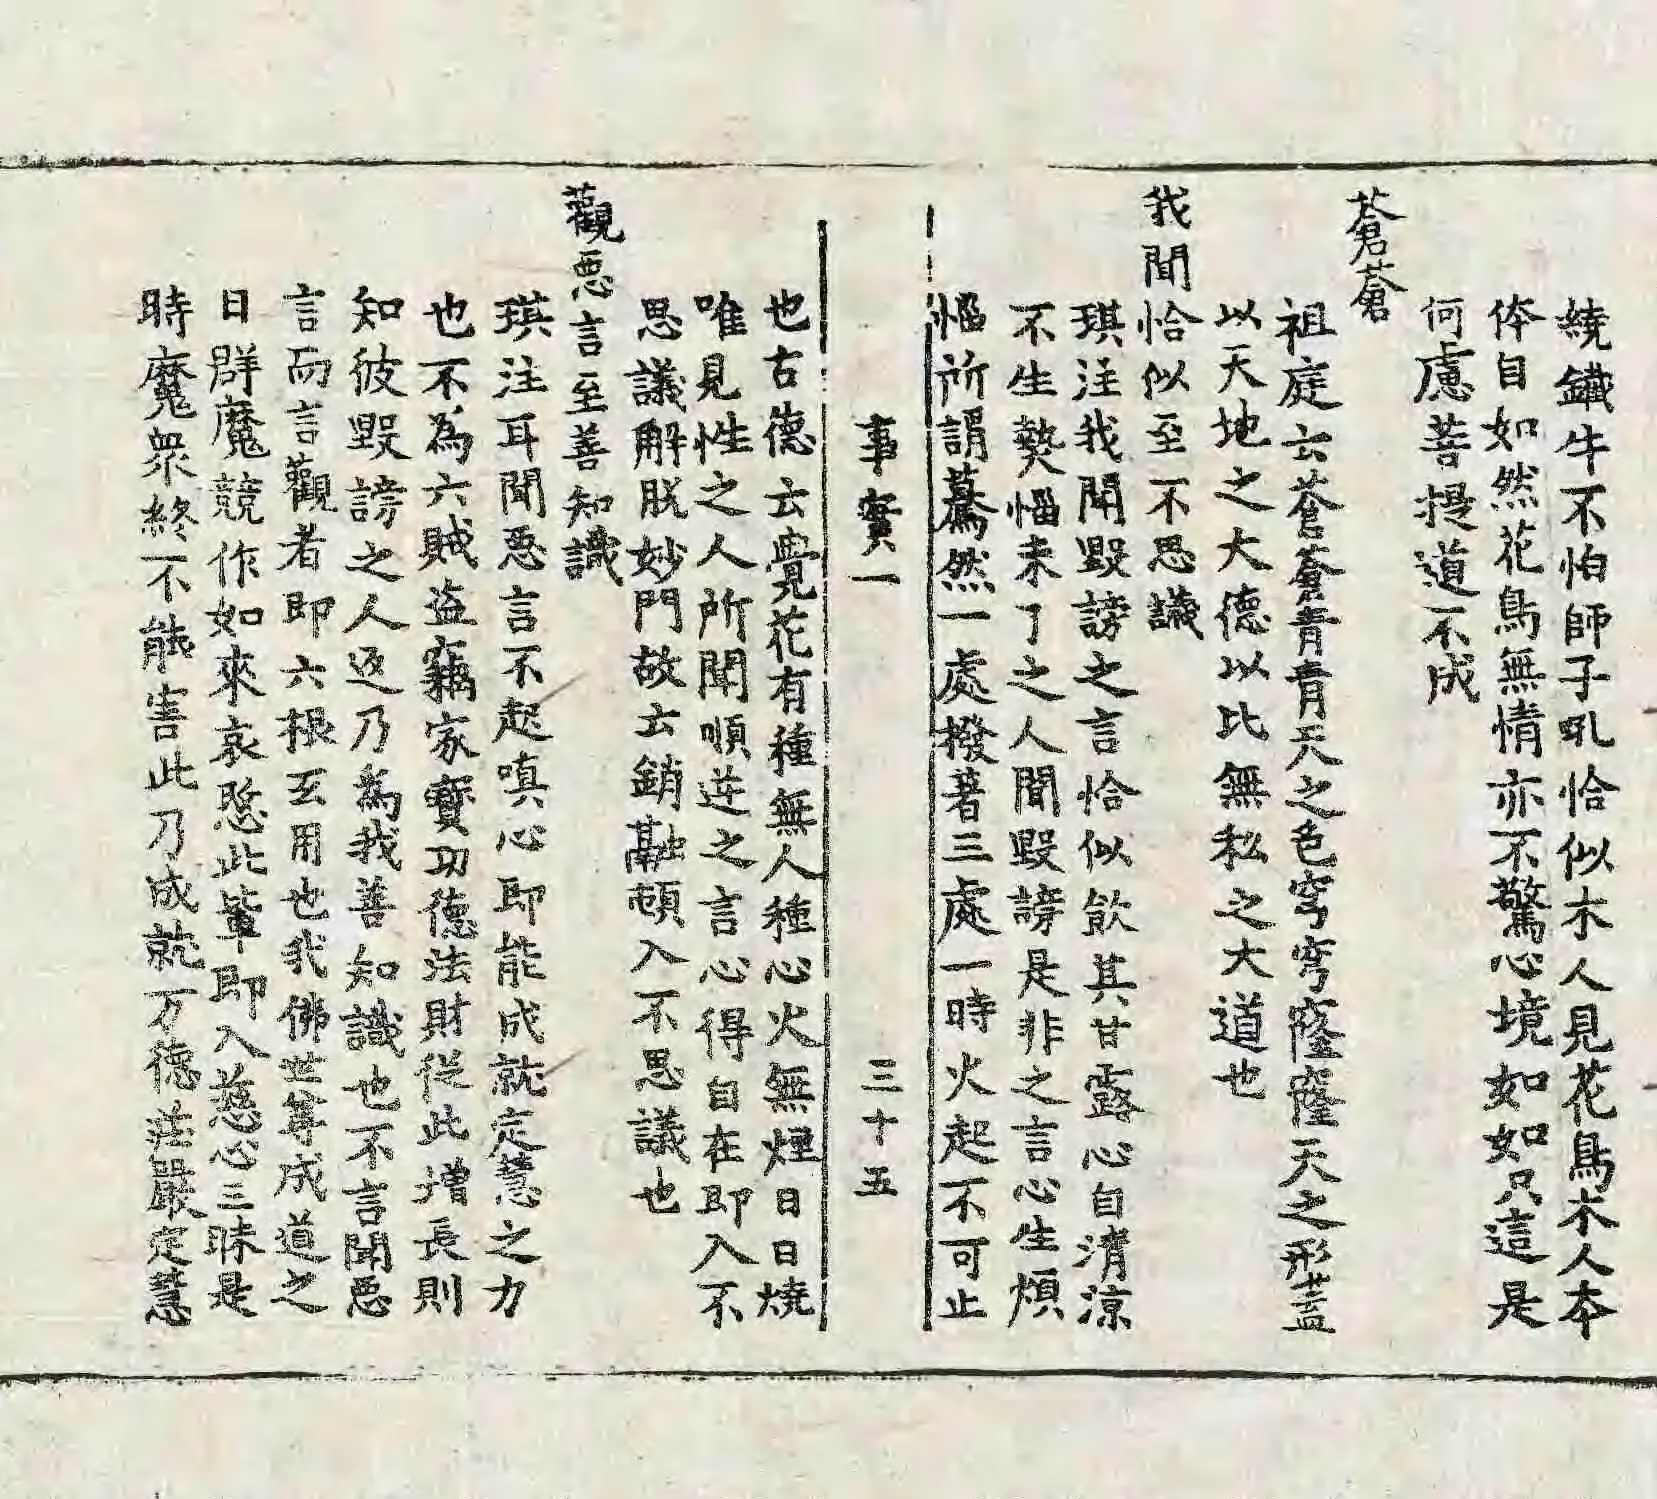 繞鐵牛不怕師子吼恰似木人見花鳥木人本
体自如然花鳥無情亦不驚心境如如只這是
何慮菩提道不成
蒼蒼
祖庭云蒼蒼青青天之色穹穹窿窿天之形蓋
以天地之大德以比無私之大道也
我聞恰似至不思議
琪注我聞毀謗之言恰似飲其甘露心自清涼
不生熱惱未了之人聞毀謗是非之言心生煩
惱所謂驀然一處撥著三處一時火起不可止
事實一 三十五
也古德云覺花有種無人種心火無煙日日燒
唯見性之人所聞順逆之言心得自在即入不
思議解脫妙門故云銷融頓入不思議也
觀惡言至善知識
琪注耳聞惡言不起嗔心即能成就定慧之力
也不為六賊盜竊家寶功德法財從此增長則
知彼毀謗之人返乃為我善知識也不言聞惡
言而言觀者即六根互用也我佛世尊成道之
日群魔競作如來哀愍此輩即入慈心三昧是
時魔眾終不能害此乃成就万德莊嚴定慧